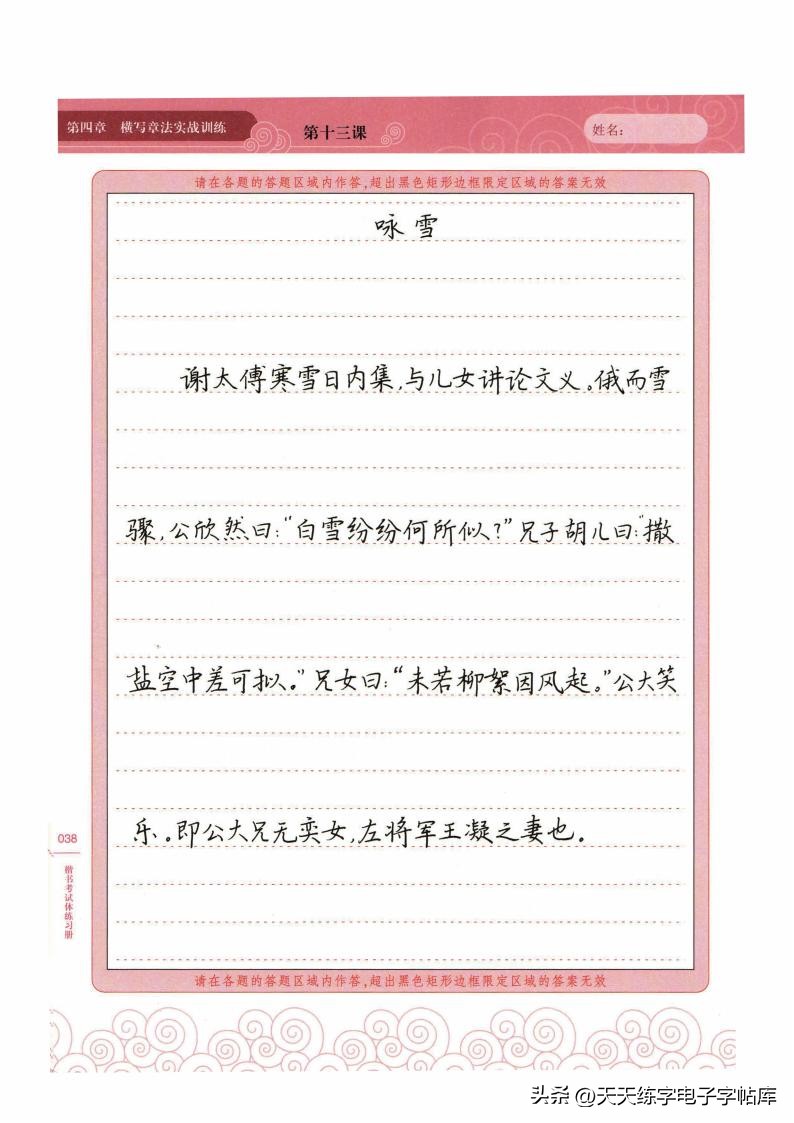 第四章 横写章法实战训练
第十三课
姓名:
请在各题的答题区域内作答,超出黑色矩形边框限定区域的答案无效
咏雪
谢太傅寒雪日内集,与儿女讲论文义。俄而雪
骤,公欣然曰:“白雪纷纷何所似?”兄子胡儿曰:“撒
盐空中差可拟。”兄女曰:“未若柳絮因风起。”公大笑
乐。即公大兄无奕女,左将军王凝之妻也。
038
楷书考试体练习册
请在各题的答题区域内作答,超出黑色矩形边框限定区域的答案无效
头条 @天天练字电子字帖库